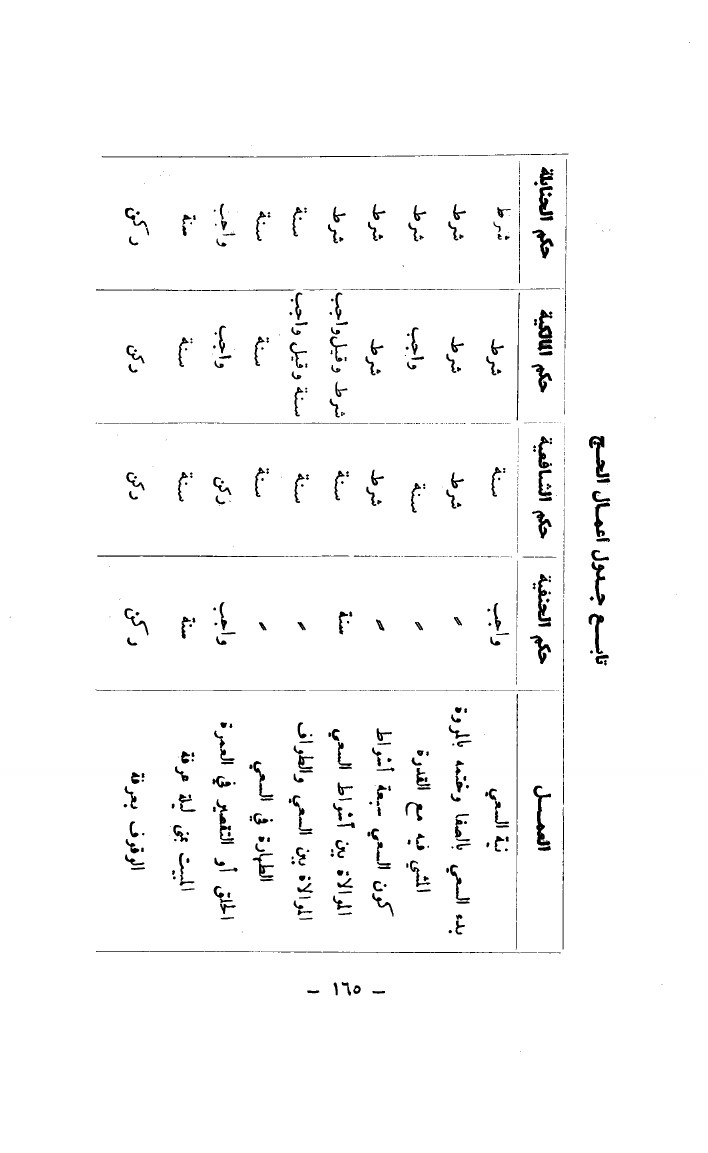 تابع جدول أعمال الحج
العمل حكم الحنفية حكم الشافعية حكم المالكية حكم الحنابلة
نية السعي واجب سنة شرط شرط
بدء السعي بالصفا وختمه بالمروة 〃 شرط شرط شرط
المشي فيه مع القدرة 〃 سنة واجب شرط
كون السعي سبعة أشواط 〃 شرط شرط شرط
الموالاة بين أشواط السعي سنة سنة شرط وقيل واجب شرط
الموالاة بين السعي والطواف 〃 سنة سنة وقيل واجب سنة
الطهارة في السعي 〃 سنة سنة سنة
الحلق أو التقصير في العمرة واجب ركن واجب واجب
المبيت بمنى ليلة عرفة سنة سنة سنة سنة
الوقوف بعرفة ركن ركن ركن ركن
– ١٦٥ –